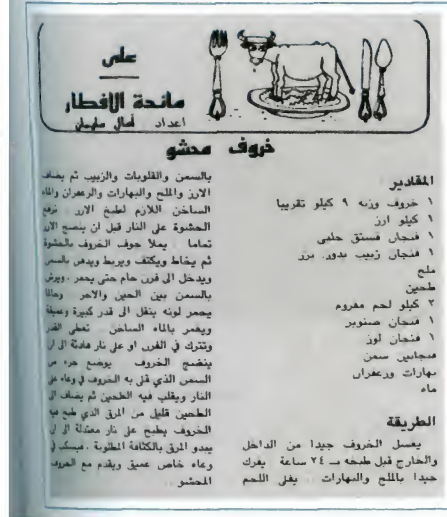 على
مائدة الافطار
اعداد أمال سليمان
خروف محشو
المقادير
١ خروف وزنه ٩ كيلو تقريبا
١ كيلو ارز
١ فنجان فستق حلبي
١ فنجان زبيب بدون بزر
ملح
طحين
٢ كيلو لحم مفروم
١ فنجان صنوبر
١ فنجان لوز
فنجانين سمن
بهارات وزعفران
ماء
الطريقة
يغسل الخروف جيدا من الداخل
والخارج قبل طبخه بـ ٢٤ ساعة يفرك
جيدا بالملح والبهارات .. يقلى اللحم
بالسمن والقلوبات والزبيب ثم يضاف
الارز والملح والبهارات والزعفران والماء
الساخن اللازم لطبخ الارز . ترفع
الحشوة على النار قبل ان ينضج الارز
تماما . يملأ جوف الخروف بالحشوة
ثم يخاط ويكتف ويربط ويدهن بالسمن
ويدخل الى فرن حام حتى يحمر . ويرش
بالسمن بين الحين والاخر وحالما
يحمر لونه ينقل الى قدر كبيرة وعميقة
ويغمر بالماء الساخن . تغطى القدر
وتترك في الفرن او على نار هادئة الى ان
ينضج الخروف يوضع جزء من
السمن الذي قلي به الخروف في وعاء على
النار ويقلب فيه الطحين ثم يضاف الى
الطحين قليل من المرق الذي طبخ فيه
الخروف يطبخ على نار معتدلة الى ان
يبدو المرق بالكثافة المطلوبة . فيسكب في
وعاء خاص عميق ويقدم مع الخروف
المحشو ..